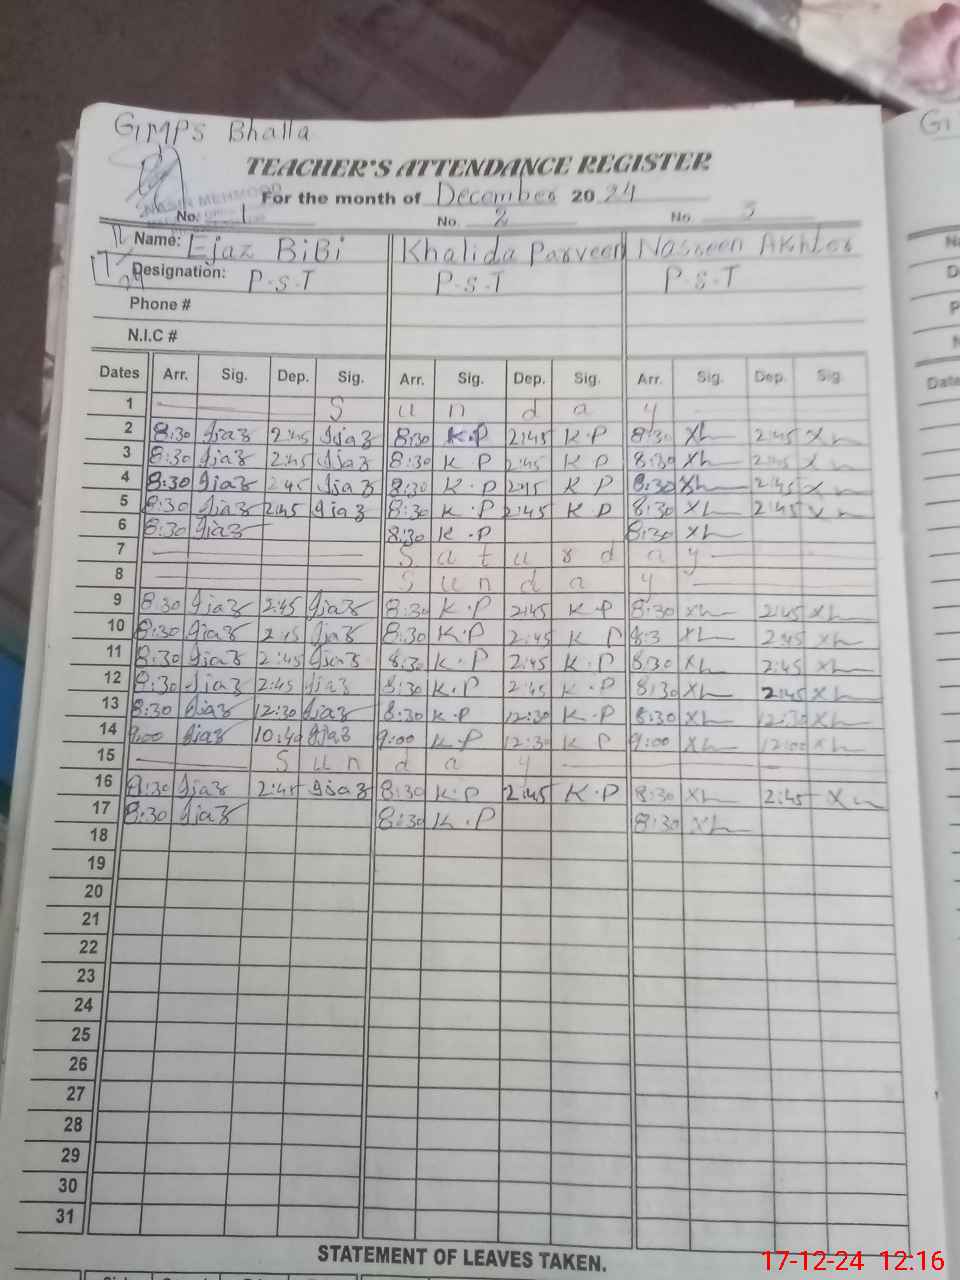 GMPS Bhalla
TEACHER'S ATTENDANCE REGISTER
For the month of December 2024
No. 1 No. 2 No. 3
Name: Ejaz BiBi Khalida Parveen Nasreen Akhter
Designation: P.S.T P.S.T P.S.T
Phone #
N.I.C #
Dates Arr. Sig. Dep. Sig. Arr. Sig. Dep. Sig. Arr. Sig. Dep. Sig.
1 S u n d a y
2 8:30 Ijaz 2:45 Ijaz 8:30 K.P 2:45 K.P 8:30 2:45
3 8:30 Ijaz 2:45 Ijaz 8:30 K P 2:45 K P 8:30 2:45
4 8:30 Ijaz 2:45 Ijaz 8:30 K.P 2:45 K P 8:30 2:45
5 8:30 Ijaz 2:45 Ijaz 8:30 K.P 2:45 K P 8:30 2:45
6 8:30 Ijaz 8:30 K.P 8:30
7 S a t u r d a y
8 S u n d a y
9 8:30 Ijaz 2:45 Ijaz 8:30 K.P 2:45 K.P 8:30 2:45
10 8:30 Ijaz 2:45 Ijaz 8:30 K.P 2:45 K P 8:3 2:45
11 8:30 Ijaz 2:45 Ijaz 8:30 K.P 2:45 K.P 8:30 2:45
12 8:30 Ijaz 2:45 Ijaz 8:30 K.P 2:45 K.P 8:30 2:45
13 8:30 Ijaz 12:30 Ijaz 8:30 K.P 12:30 K.P 8:30 12:30
14 9:00 Ijaz 10:40 Ijaz 9:00 K.P 12:30 K P 9:00 12:00
15 S u n d a y
16 8:30 Ijaz 2:45 Ijaz 8:30 K.P 2:45 K.P 8:30 2:45
17 8:30 Ijaz 8:30 K.P 8:30
18
19
20
21
22
23
24
25
26
27
28
29
30
31
STATEMENT OF LEAVES TAKEN.
17-12-24 12:16